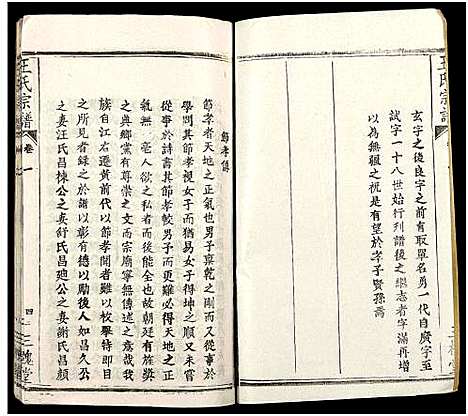 王氏宗譜
玄字之後良字之前有取單名勇一代自廣字至
試字一十八世始行列譜後之繼志者字滿再增
以為無疆之祝是有望於孝子賢孫焉
三槐堂
節孝傳
節孝者天地之正氣也男子稟乾之剛而又從事於
學則其節孝視女子而猶易女子則坤順又未嘗
從事於詩書其節孝較男子而更難必得天地之正
氣無一毫人欲之私者而後能全此故朝廷有旌
之典鄉黨有尊崇之文而宗廟寧無傳述之意哉我
族自遷古遂黃前代以節孝聞者難以考其
之所見者錄之於譜以彰有德以勵後人如昌久公
之妻汪氏昌棟公之妻舒氏昌迎公之妻謝氏昌顏
王氏宗譜
卷一
四
三槐堂